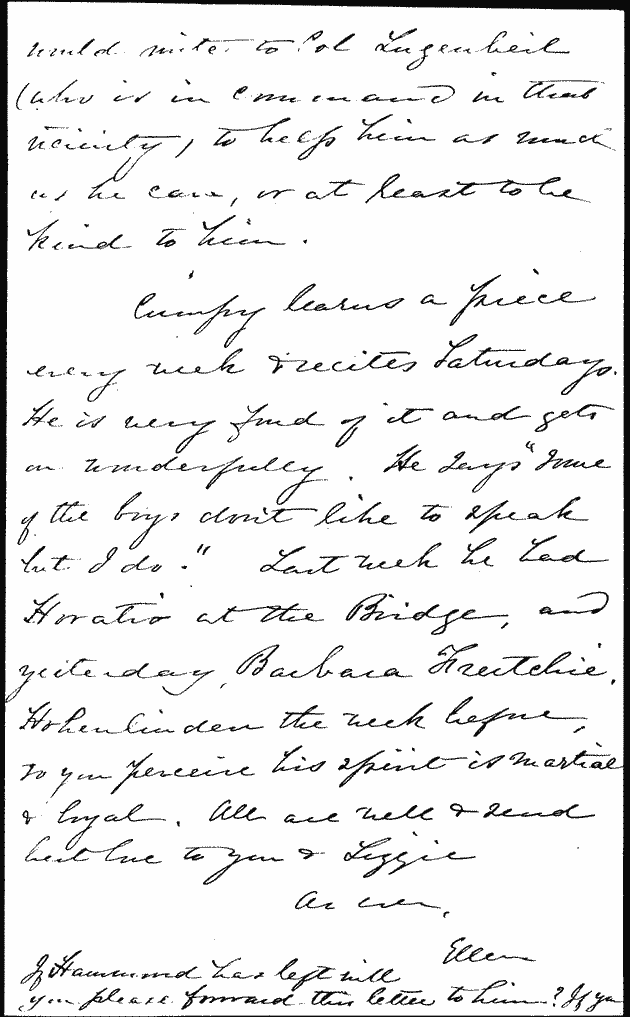 would write to Col Lugenbeil
(who is in command in that
vicinity) to help him as much
as he can, or at least to be
kind to him.
Cumpy learns a piece
every week & recites Saturdays.
He is very fond of it and gets
on wonderfully. He says "Some
of the boys don't like to speak
but I do." Last week he had
Horatio at the Bridge, and
yesterday, Barbara Freitchie.
Hohenlinden the week before,
so you perceive his spirit is martial
& loyal. All are well & send
best love to you & Lizzie
As ever,
Ellen
If Hammond has left will
you please forward this letter to him? If you